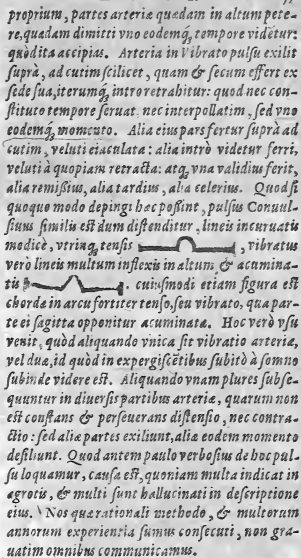 proprium, partes arteriæ quædam in altum pete-
re, quædam dimitti vno eodemq́, tempore videtur:
quòd ita accipias. Arteria in Vibrato pulsu exilit
suprà, ad cutim scilicet, quam & secum effert ex
sede sua, iterumq́, intro retrahitur: quod nec con-
stituto tempore seruat, nec interpollatim, sed vno
eodemq́, momẽto. Alia eius pars fertur suprà ad
cutim, veluti eiaculata: alia intrò videtur ferri,
veluti à quopiam retracta: atq́, vna validius ferit,
alia remißius, alia tardius, alia celerius. Quod si
quoquo modo depingi hæc poßint, pulsus Conuul-
siuus similis est dum distenditur, lineis incuruatis
modicè, vtrinq́, tensis , vibratus
verò lineis multum inflexis in altum, & acumina-
tis . cuiusmodi etiam figura est
chordæ in arcu fortiter tenso, seu vibrato, qua par-
te ei sagitta opponitur acuminatæ. Hoc verò vsu
venit, quòd aliquando vnica sit vibratio arteriæ,
vel duæ, id quòd in expergiscẽtibus subitò à somno
subinde videre est. Aliquando vnam plures subse-
quuntur in diuersis partibus arteriæ, quarum non
est constans & perseuerans distensio, nec contra-
ctio: sed aliæ partes exiliunt, aliæ eodem momento
desiliunt. Quod autem paulo verbosius de hoc pul-
su loquamur, causa est, quoniam multa indicat in
ægrotis, & multi sunt hallucinati in descriptione
eius. Nos quæ rationali methodo, & multorum
annorum experientia sumus consecuti, non gra-
uatim omnibus communicamus.